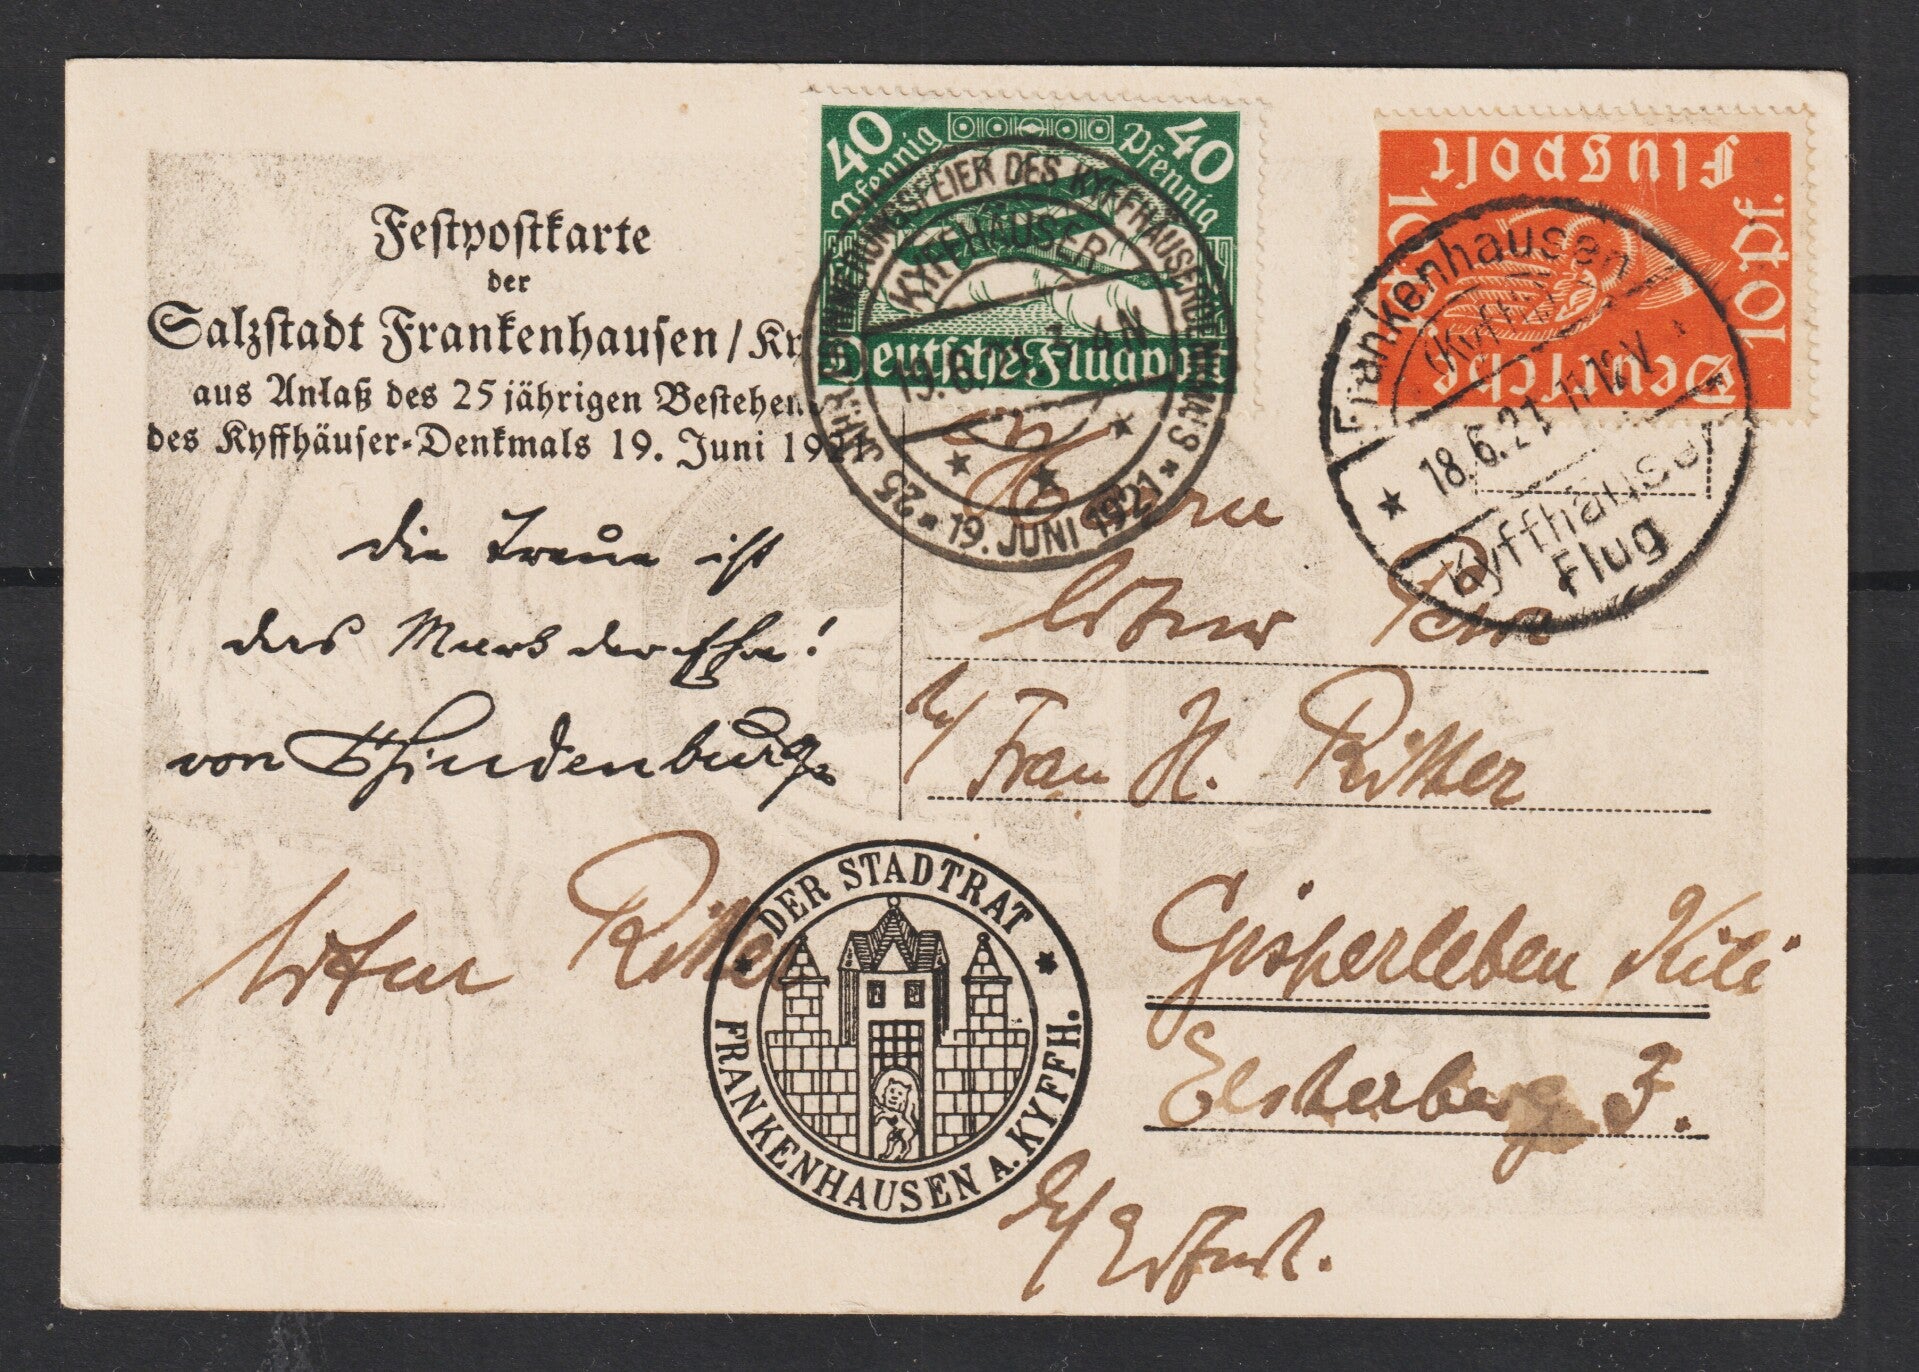 Festpostkarte
der
Salzstadt Frankenhausen/Ky
aus Anlaß des 25 jährigen Bestehen
des Kyffhäuser-Denkmals 19. Juni 1921
die Treue ist
das Mark der Ehre!
von Hindenburg
Artur Ritter
40 40
Pfennig Pfennig
Deutsche Flugpost
25 JAHR. ERINNERUNGSFEIER DES KYFFHÄUSERDENKMALS
KYFFHÄUSER
19.6.21. 3-4 N
* 19. JUNI 1921 *
Deutsche
Flugpost
10 Pf. 10 Pf.
Frankenhausen
(Kyffh.)
18.6.21 11-12 V
Kyffhäuser
Flug
Herrn
Artur
b/ Frau H. Ritter
Gispersleben Kili
Elsterberg 3.
b/ Erfurt.
* DER STADTRAT *
FRANKENHAUSEN A. KYFFH.